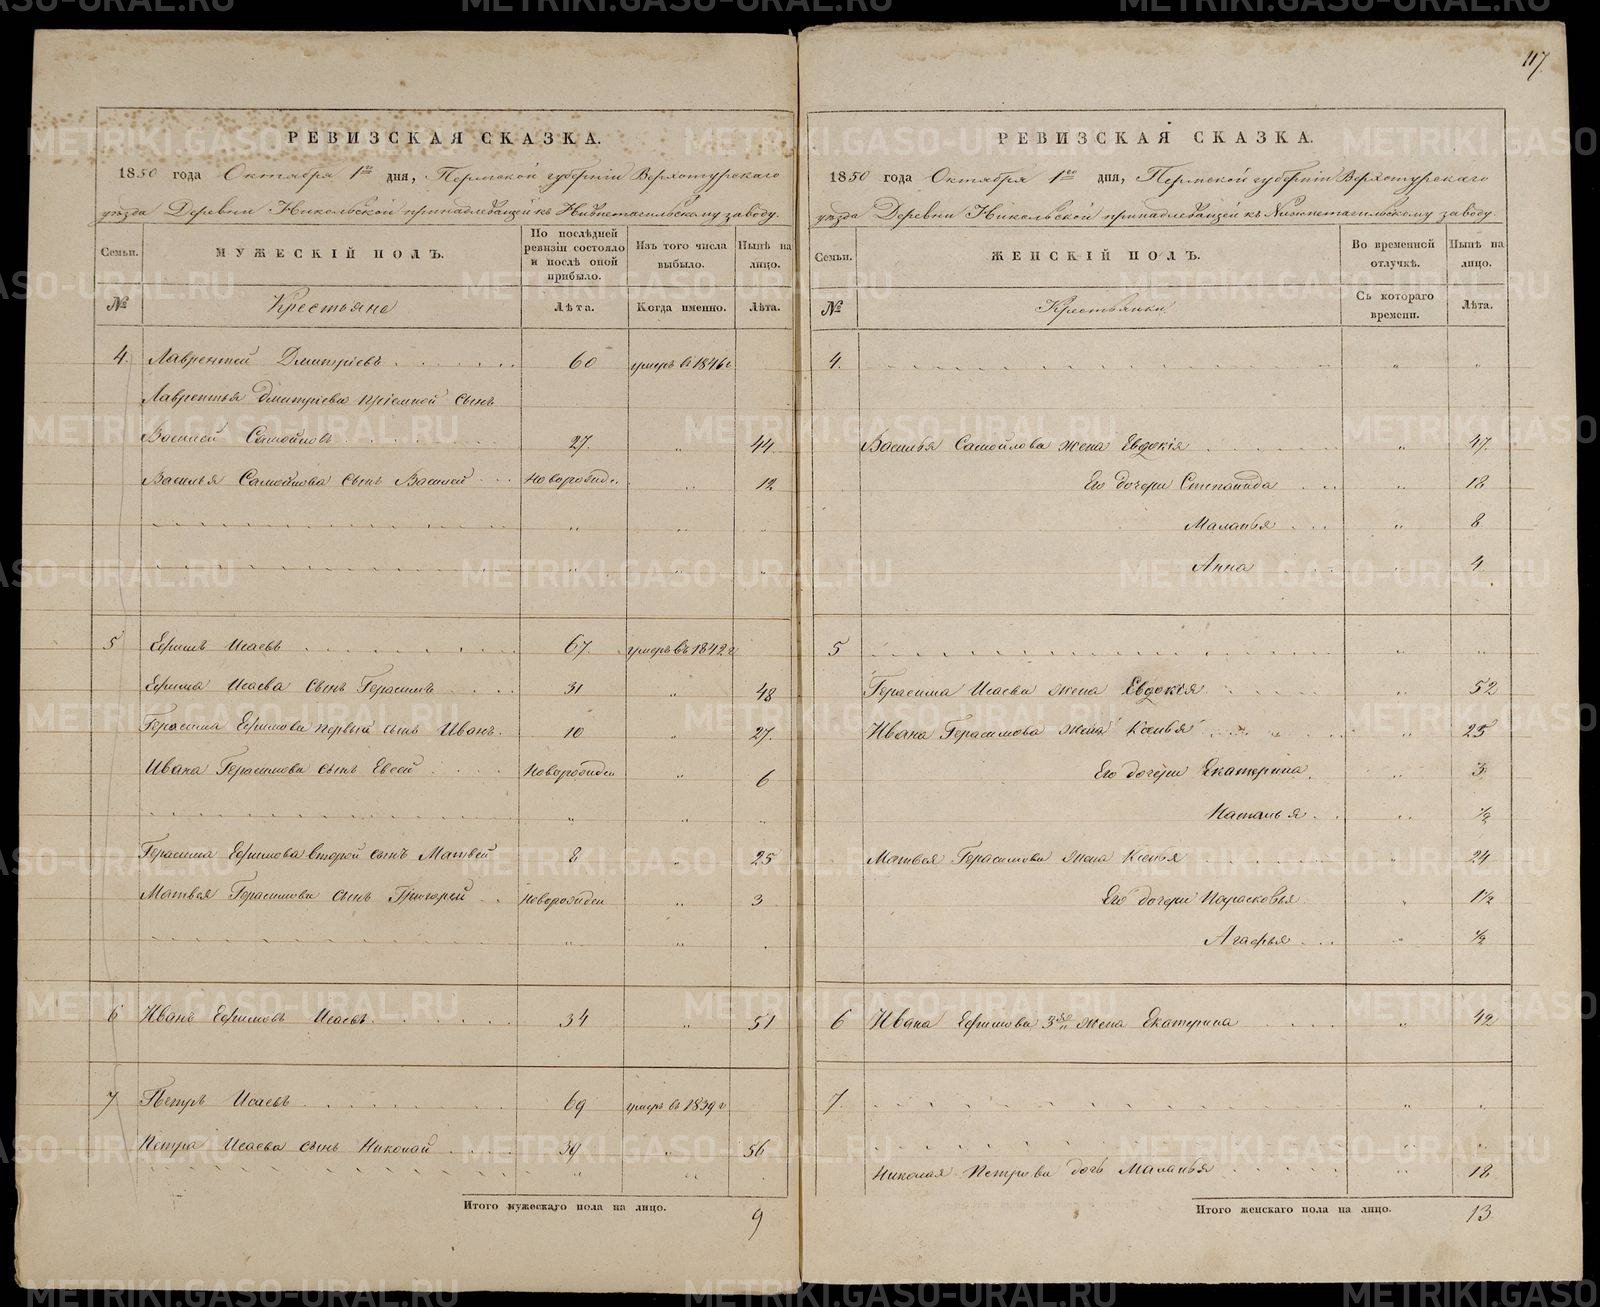 117.
РЕВИЗСКАЯ СКАЗКА.
1850 года Октября 1го дня, Пермской губерніи Верхотурскаго
уѣзда Деревни Никольской принадлежащей къ Нижнетагильскому заводу.
Семьи.
МУЖЕСКІЙ ПОЛЪ.
По послѣдней ревизіи состояло и послѣ оной прибыло.
Изъ того числа выбыло.
Нынѣ на лицо.
№
Крестьяне
Лѣта.
Когда именно.
Лѣта.
4. Лаврентей Дмитріевъ 60 умеръ въ 1846 г
Лаврентья Дмитріева пріемной сынъ
Василей Самойловъ 27 " 44
Василья Самойлова сынъ Василей Новорожден " 12
5 Ефимъ Исаевъ 67 умеръ въ 1842 г
Ефима Исаева сынъ Герасимъ 31 " 48
Герасима Ефимова первый сынъ Иванъ 10 " 27
Ивана Герасимова сынъ Евсей Новорожден " 6
Герасима Ефимова второй сынъ Матвей 8 " 25
Матвея Герасимова сынъ Григорей Новорожден " 3
6 Иванъ Ефимовъ Исаевъ 34 " 51
7 Петръ Исаевъ 69 умеръ въ 1839 г
Петра Исаева сынъ Николай 39 " 56
Итого мужескаго пола на лицо. 9
РЕВИЗСКАЯ СКАЗКА.
1850 года Октября 1го дня, Пермской губерніи Верхотурскаго
уѣзда Деревни Никольской принадлежащей къ Нижнетагильскому заводу.
Семьи.
ЖЕНСКІЙ ПОЛЪ.
Во временной отлучкѣ.
Нынѣ на лицо.
№
Крестьянки
Съ котораго времени.
Лѣта.
4. " "
Василья Самойлова жена Евдокія " 47
Его дочери Степанида " 18
Маланья " 8
Анна " 4
5 " "
Герасима Исаева жена Евдокія " 52
Ивана Герасимова жена Ксенья " 25
Его дочери Екатерина " 3
Наталья " 1/2
Матвея Герасимова жена Ксенья " 24
Его дочери Парасковья " 1 1/2
Агафья " 1/2
6 Ивана Ефимова 3я жена Екатерина " 42
7. " "
Николая Петрова дочь Маланья " 18
Итого женскаго пола на лицо. 13
METRIKI.GASO-URAL.RU